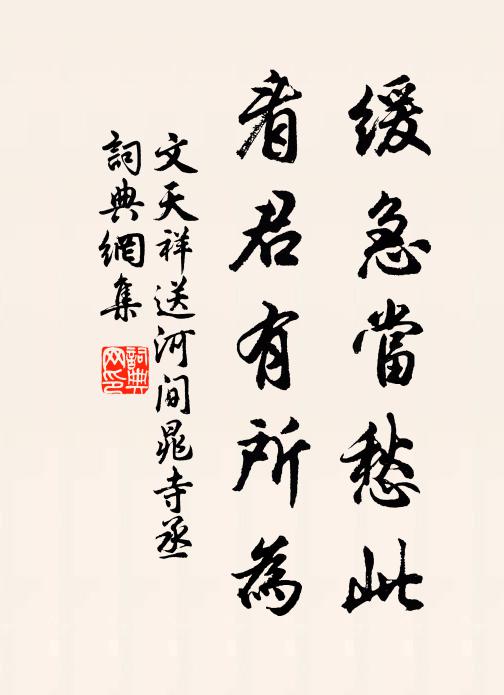 緩急當愁此
看君有所為
文天祥送河间晁寺丞
詞典網集
詞典网印